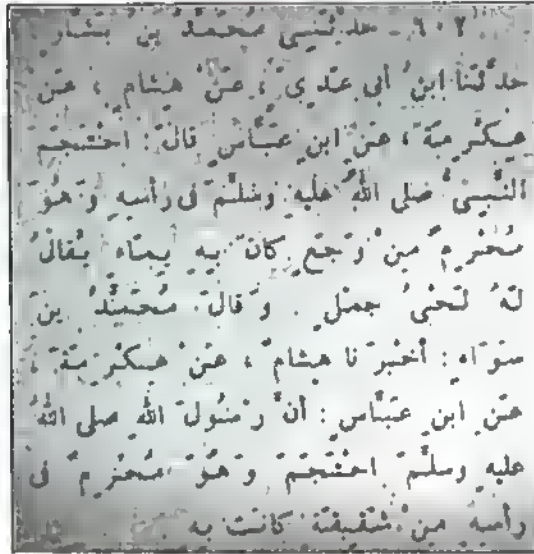 ٦٠٢ - حدثني محمد بن بشار
حدثنا ابنُ أبي عَدِيٍّ ، عَنْ هشامٍ ، عَن
عِكْرِمَةَ ، عَنِ ابنِ عبَّاسٍ قالَ : احْتَجَمَ
النَّبيُّ صلى اللهُ عليه وسلَّمَ فى رأسِهِ وَهُوَ
مُحْرِمٌ مِنْ وَجَعٍ كانَ بِهِ بِمَاءٍ يُقالُ
لَهُ لَحْىُ جملٍ . وَقالَ مُحَمَّدُ بنُ
سَوَاءٍ : أخبرَنا هشامٌ ، عَنْ عِكْرِمَةَ ،
عَنِ ابنِ عبَّاسٍ : أنَّ رَسُولَ اللهِ صلى اللهُ
عليه وسلَّمَ احْتَجَمَ وَهُوَ مُحْرِمٌ فى
رأسِهِ مِنْ شَقِيقَةٍ كانَت بِهِ